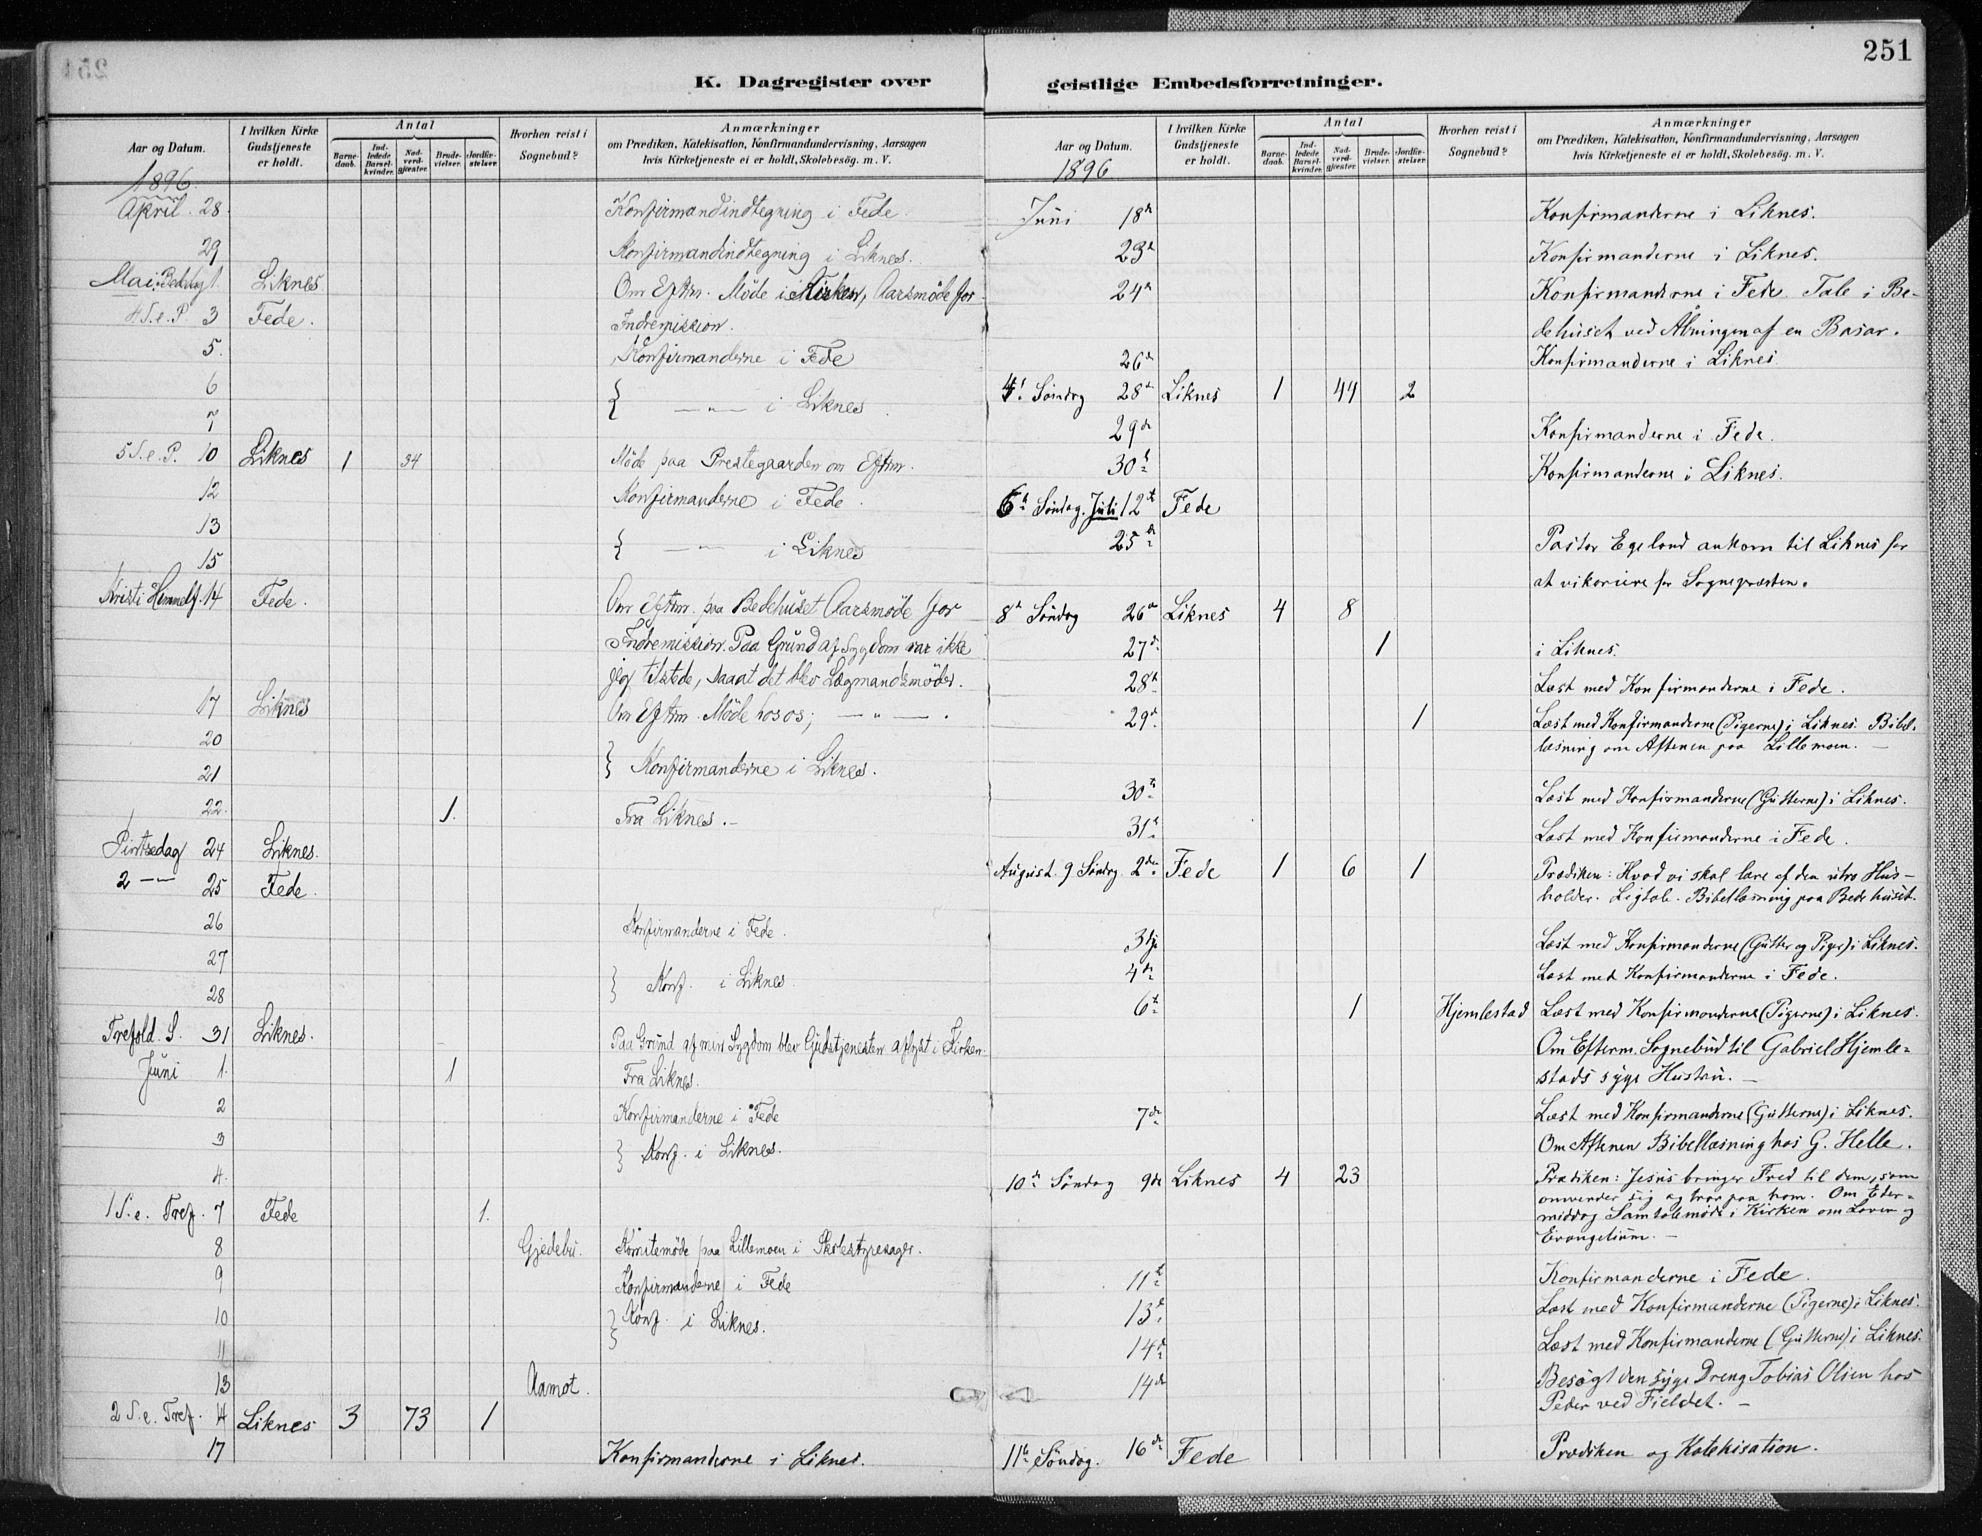 251
K. Dagregister over geistlige Embedsforretninger.
Aar og Datum.
I hvilken Kirke Gudstjeneste er holdt.
Antal
Barne-daab.
Ind-ledede Barsel-kvinder.
Nad-verd-gjæster.
Brude-vielser.
Jordfæ-stelser.
Hvorhen reist i Sognebud?
Anmærkninger
om Prædiken, Katekisation, Konfirmandundervisning, Aarsagen
hvis Kirketjeneste ei er holdt, Skolebesøg. m. V.
1896.
April. 28. Konfirmandindtegning i Fede.
29 Konfirmandindtegning i Liknes.
Mai. Liknes Om Eftm. Møde i Kirken, Aarsmøde for
4 S. e. P. 3 Fede. Indremission.
5. Konfirmanderne i Fede
6 { — " — i Liknes.
7
5 S. e. P. 10 Liknes 1 34 Møde paa Prestegaarden om Eftm.
12 Konfirmanderne i Fede.
13 { — " — i Liknes
15
Kristi Himmelf. 14 Fede. Om Eftm. paa Bedehuset Aarsmøde for
Indremission. Paa Grund af Sygdom var ikke
jeg tilstede, saaat det blev Lægmandsmøder.
17 Liknes Om Eftm. Møde hos os; — " — .
20 } Konfirmanderne i Liknes.
21
22. 1. Fra Liknes. –
Pintsedag 24 Liknes.
2 — " — 25 Fede.
26 Konfirmanderne i Fede.
27 } Konf. i Liknes.
28
Trefold. S. 31 Liknes. Paa Grund af min Sygdom blev Gudstjenesten aflyst i Kirken.
Juni 1. 1 Fra Liknes.
2 Konfirmanderne i Fede
3 } Konf. i Liknes.
4.
1 S. e. Tref. 7 Fede 1.
8 Gjedebu. Komitemøde paa Lillemoen i Skolestyresager.
9 Konfirmanderne i Fede
10 } Konf. i Liknes.
11
13 Aamot.
2 S. e. Tref. 14 Liknes 3 73 1
17 Konfirmanderne i Liknes.
Aar og Datum.
I hvilken Kirke Gudstjeneste er holdt.
Antal
Barne-daab.
Ind-ledede Barsel-kvinder.
Nad-verd-gjæster.
Brude-vielser.
Jordfæ-stelser.
Hvorhen reist i Sognebud?
Anmærkninger
om Prædiken, Katekisation, Konfirmandundervisning, Aarsagen
hvis Kirketjeneste ei er holdt, Skolebesøg. m. V.
1896
Juni 18d Konfirmanderne i Liknes.
23d Konfirmanderne i Liknes.
24d Konfirmanderne i Fede. Tale i Be-
dehuset ved Åbningen af en Basar.
26d Konfirmanderne i Liknes
4d Søndag 28d Liknes 1 44 2
29de Konfirmanderne i Fede.
30t Konfirmanderne i Liknes.
6t Søndag. Juli 12t Fede
25d Pastor Egeland ankom til Liknes for
at vikariere for Sognepræsten.
8d Søndag 26d Liknes 4 8
27d 1 i Liknes.
28d Læst med Konfirmanderne i Fede.
29d 1 Læst med Konfirmanderne (Pigerne) i Liknes. Bibel-
læsning om Aftenen paa Lillemoen. —
30t Læst med Konfirmanderne (Gutterne) i Liknes.
31t Læst med Konfirmanderne i Fede.
August. 9 Søndag. 2den Fede 1 6 1 Prædiken: Hvad vi skal lære af den utro Hus-
holder. Ligtale. Bibellæsning paa Bedehuset.
3dje Læst med Konfirmanderne (Gutter og Piger) i Liknes.
4de Læst med Konfirmanderne i Fede.
6t 1 Hjemlestad Læst med Konfirmanderne (Pigerne) i Liknes.
Om Efterm. Sognebud til Gabriel Hjemle-
stads syge Hustru. —
7de Læst med Konfirmanderne (Gutterne) i Liknes.
Om Aftenen Bibellæsning hos G. Helle.
10d Søndag 9de Liknes 4 23 Prædiken: Jesus bringer Fred til dem, som
omvender sig og tror paa ham. Om Efter-
middag Samtalemøde i Kirken om Loven og
Evangelium. —
11t Konfirmanderne i Fede.
13d Læst med Konfirmanderne (Pigerne) i Liknes.
14d Læst med Konfirmanderne (Gutterne) i Liknes.
14de Besøgt den syge Dreng Tobias Olsen hos
Peder ved Fjeldet. —
11t Søndag. 16de Fede Prædiken og Katekisation.